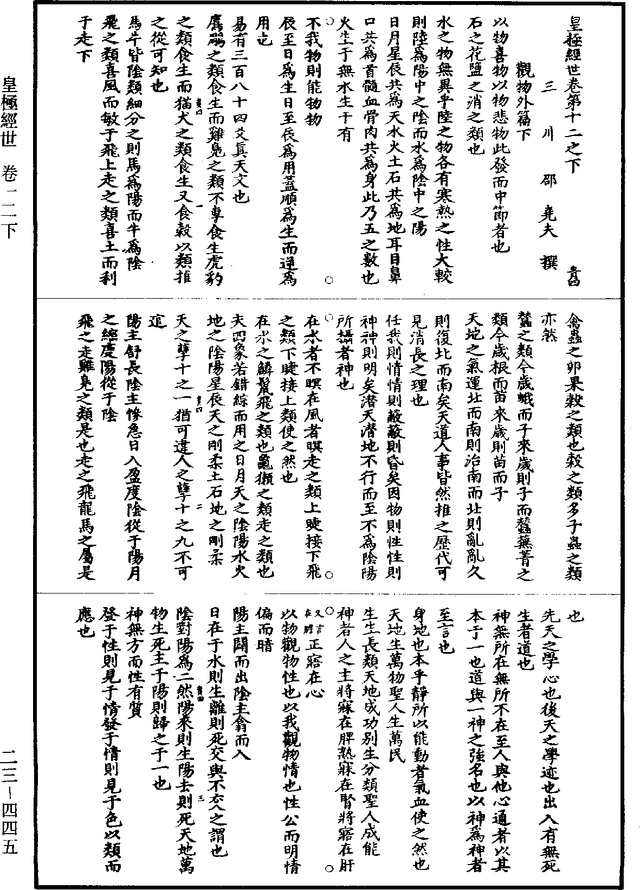 皇極經世卷第十二之下
三川邵堯夫撰
觀物外篇下
以物喜物以物悲物此發而中節者也
石之花鹽之消之類也
水之物無異乎陸之物各有寒熱之性大較
則陸為陽中之陰而水為陰中之陽
日月星辰共為天水火土石共為地耳目鼻
口共為首髓血骨肉共為身此乃五之數也
火生于無水生于有
不我物則能物物
辰至日為生日至辰為用蓋順為生而逆為
用也
易有三百八十四爻真天文也
鷹鵰之類食生而雞鳧之類不專食生虎豹
之類食生而猫犬之類食生又食穀以類推
之從可知也
馬牛皆陰類細分之則馬為陽而牛為陰
飛之類喜風而敏于飛上走之類喜土而利
于走下
禽蟲之卵果穀之類也穀之類多子蟲之類
亦然
蠶之類今歲蛾而子來歲則子而蠶蕪菁之
類今歲根而苗來歲則苗而子
天地之氣運北而南則治南而北則亂亂久
則復北而南矣天道人事皆然推之歷代可
見消長之理也
任我則情情則蔽蔽則昏矣因物則性性則
神神則明矣潛天潛地不行而至不為陰陽
所攝者神也
在水者不瞑在風者瞑走之類上睫接下飛
之類下睫接上類使之然也
在水之鱗鬣飛之類也龜獺之類走之類也
夫四象若錯綜而用之日月天之陰陽水火
地之陰陽星辰天之剛柔土石地之剛柔
天之孽十之一猶可違人之孽十之九不可
逭
陽主舒長陰主慘急日入盈度陰從于陽月
之縮度陽從于陰
飛之走雞鳧之類是也走之飛龍馬之屬是
也
先天之學心也後天之學迹也出入有無死
生者道也
神無所在無所不在至人與他心通者以其
本于一也道與一神之強名也以神為神者
至言也
身地也本乎靜所以能動者氣血使之然也
天地生萬物聖人生萬民
生生長類天地成功别生分類聖人成能
神者人之主將寐在脾熟寐在腎將寤在肝
又言在膽正寤在心
以物觀物性也以我觀物情也性公而明情
偏而暗
陽主闢而出陰主翕而入
日在于水則生離則死交與不交之謂也
陰對陽為二然陽來則生陽去則死天地萬
物生死主于陽則歸之于一也
神無方而性有質
發于性則見于情發于情則見于色以類而
應也
皇極經世 卷一二下
二三－四四五